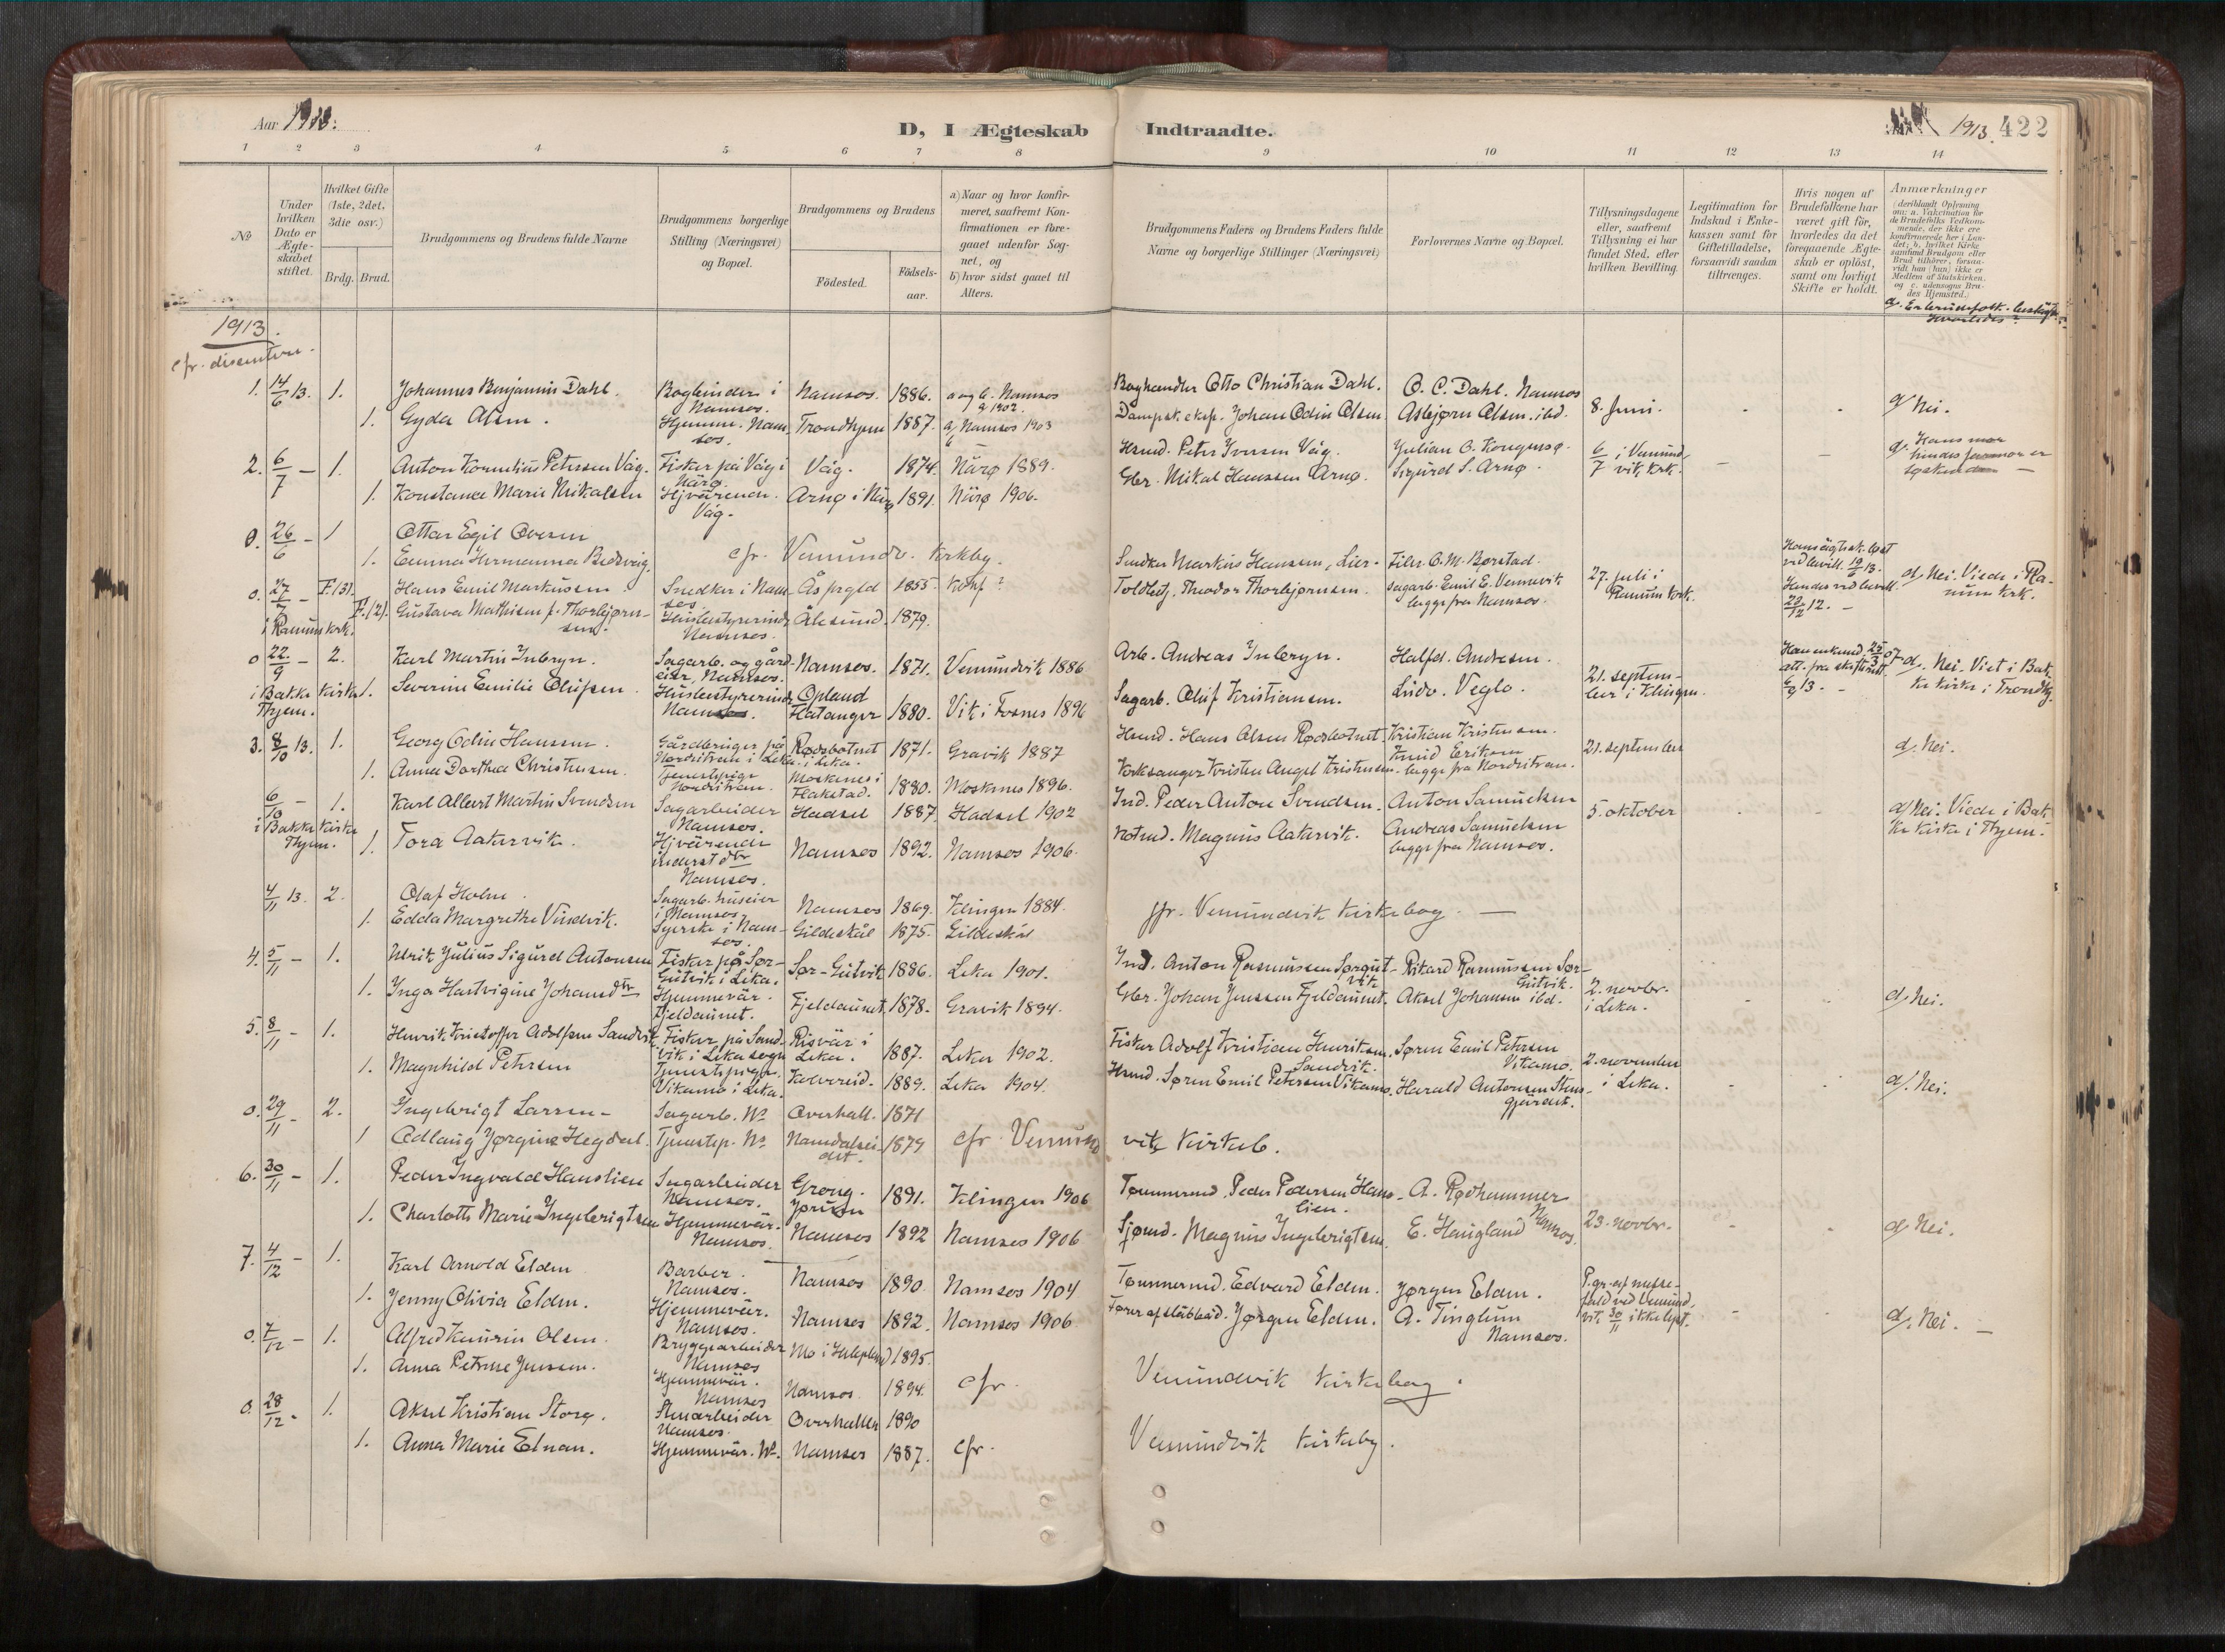 Aar 1913.
D, I Ægteskab Indtraadte.
1913. 422
1 2 3 4 5 6 7 8 9 10 11 12 13 14
No
Under hvilken Dato er Ægteskabet stiftet.
Hvilket Gifte (1ste, 2det, 3die osv.)
Brdg. Brud.
Brudgommens og Brudens fulde Navne
Brudgommens borgerlige Stilling (Næringsvei) og Bopæl.
Brudgommens og Brudens
Födested.
Födsels-aar.
a) Naar og hvor konfir-
meret, saafremt Kon-
firmationen er fore-
gaaet udenfor Sog-
net, og
b) hvor sidst gaaet til
Alters.
Brudgommens Faders og Brudens Faders fulde
Navne og borgerlige Stillinger (Næringsvei)
Forlovernes Navne og Bopæl.
Tillysningsdagene
eller, saafremt
Tillysning ei har
fundet Sted, efter
hvilken Bevilling.
Legitimation for
Indskud i Enke-
kassen samt for
Giftetilladelse,
forsaavidt saadan
tiltrænges.
Hvis nogen af
Brudefolkene har
været gift før,
hvorledes da det
foregaaende Ægte-
skab er oplöst,
samt om lovligt
Skifte er holdt.
Anmærkninger
(deriblandt Oplysning
om: a. Vakcination for
de Brudefolks Vedkom-
mende, der ikke ere
konfirmerede her i Lan-
det; b. hvilket Kirke-
samfund Brudgom eller
Brud tilhörer, forsaa-
vidt han (hun) ikke er
Medlem af Statskirken.
og c. udensogns Bru-
des Hjemsted.)
1913.
cfr. disenter
1. 14/6 13. 1. Johannes Benjamin Dahl. Bogbinder i Namsos. Namsos. 1886. a og b. Namsos 1902. Boghandler Otto Christian Dahl. O. C. Dahl. Namsos
1. Gyda Olsen. Hjemme. Namsos. Trondhjem 1887. Namsos 1903 Dampsk. eksp. Johan Odin Olsen Asbjørn Olsen. ibd. 8. Juni. d/ Nei.
2. 6/7 – 1. Anton Kornelius Petersen Våg. Fisker på Våg i Närø. Våg. 1874. Närø 1889. Hsmd. Peter Iversen Våg. Julian O. Kongensø. 6/7 i Vemundvik krk. d/ Hans mor
1. Konstance Marie Mikalsen Hjvärende. Våg. Arnø i Närø 1891. Närø 1906. Gbr. Mikal Hanssen Arnø. Sigurd S. Arnø.
0. 26/6 – 1 Ottar Egil Ovesen
1. Emma Hermanna Bedsvåg. cfr. Vemundv. kirkebog.
0. 27/7 – F.(3). Hans Emil Markussen Snedker i Namsos. Ås prgld 1855. Konf? Snedker Markus Hansen, Lier. Filer O. M. Børstad.
i Ranum kirk. F.(2). Gustava Mathisen f. Thorbjørnsen. Husbestyrerinde Namsos. Ålesund. 1879. Toldbetj. Theodor Thorbjørnsen. Sagarb. Emil E. Vennevik begge fra Namsos. 27. juli i Ranum kirk. d/ Nei. Viede i Ranum kirk.
0 22/9 – 2. Karl Martin Inberyn. Sagarb. og gårdeier, Namsos. Namsos. 1871. Vemundvik 1886 Arb. Andreas Inberyn. Halfd. Andresen.
i Bakke kirke Thjem. 1. Severine Emilie Olufsen. Husbestyrerinde Namsos. Opland Flatanger 1880. Vik i Fosnes 1896 Sagarb. Oluf Kristiansen. Ludv. Veglo. 21. september i Klingen. d/. Nei. Viet i Bakke kirke i Trondhj.
3. 8/10 13. 1. Georg Odin Hanssen. Gårdbruger på Nordstran i Leka. Rødsbotnet i Leka. 1871. Gravik 1887 Hsmd. Hans Olsen Rødsbotnet Kristian Kristensen.
1. Anna Dorthea Christensen. Tjenestepige Nordstran. Moskenes i Flakstad. 1880. Moskenes 1896. Kirksanger Kristen Angel Kristensen. Knud Eriksen begge fra Nordstran. 21. september d/ Nei.
6/10 – 1. Karl Albert Martin Svendsen Sagarbeider Namsos. Hadsel 1887 Hadsel 1902 Ind. Peder Anton Svendsen. Anton Samuelsen
i Bakke kirke Thjem. 1. Tora Aatarvik. Hjvärende Namsos. Namsos 1892. Namsos 1906. Magnus Aatarvik. Andreas Samuelsen begge fra Namsos. 5. oktober d/ Nei. Viede i Bakke kirke i Thjem.
4/11 13. 2. Olaf Holm. Sagarb. huseier i Namsos. Namsos 1869. Klingen 1884.
1. Edda Margrethe Vindvik. Syerske i Namsos. Gildeskål 1875. Gildeskål cfr. Vemundvik kirkebog. –
4. 5/11 – 1. Ulrik Julius Sigurd Antonsen Fisker på Sør-Gutvik i Leka. Sør-Gutvik 1886. Leka 1901. Ind. Anton Rasmussen Sørgutvik Rikard Rasmussen Sør-Gutvik.
1. Inga Hartvigine Johansdtr Hjemmevär. Fjeldaunet. Fjeldaunet. 1878. Gravik 1894. Gbr. Johan Jenssen Fjeldaunet. Aksel Johansen ibd. 2. novbr. i Leka. d/ Nei.
5. 8/11 – 1. Henrik Kristoffer Adolfsen Sandvik. Fisker på Sandvik i Leka sogn Risvär i Leka. 1887. Leka 1902. Fisker Adolf Kristian Henriksen Sandvik. Søren Emil Petersen Vikamo.
1. Magnhild Petersen Tjenestepige. Vikamo i Leka. Kolvereid. 1889. Leka 1904. Hsmd. Søren Emil Petersen Vikamo. Harald Antonsen 2. november i Leka. d/. Nei.
0. 29/11 – 2. Ingebrigt Larsen – Sagarb. Ns Overhall. 1871
1 Odlaug Jørgine Hegdal. Tjenestep. Ns Namdalseidet. 1879 cfr. Vemundvik kirkeb.
6. 30/11 – 1. Peder Ingvald Hanslien Sagarbeider Namsos. Grong. 1891. Klingen 1906 Tømmermd. Peder Pedersen Hanslien. A. Rødhammer
1. Charlotte Marie Ingebrigtsen Hjemmevär. Namsos. Namsos 1892 Namsos 1906 Sjømd. Magnus Ingebrigtsen. E. Haugland Namsos. 23. novbr. d/ Nei.
7. 4/12 – 1. Karl Arnold Elden Barber. Namsos. Namsos 1890. Namsos 1904 Tømmermd. Edvard Elden. Jørgen Elden.
1. Jenny Olivia Elden. Hjemmevär. Namsos. Namsos 1892. Namsos 1906 Fører af slæbebåd. Jørgen Elden. A. Tinglum Namsos. P. gr. af messefald ved Vemundvik 30/11 ikke lyst. d/. Nei. –
0. 7/12 – 1. Alfred Laurin Olsen. Bryggearbeider Namsos 1895.
1. Anna Petrine Jenssen. Hjemmevär. Namsos Namsos. 1894. cfr. Vemundvik kirkebog.
0. 28/12 – 1. Aksel Kristian Storø. Stenarbeider Namsos. Overhallen 1890
1. Anna Marie Elnan. Hjemmevär. Ns. Namsos 1887. cfr. Vemundvik kirkebg.